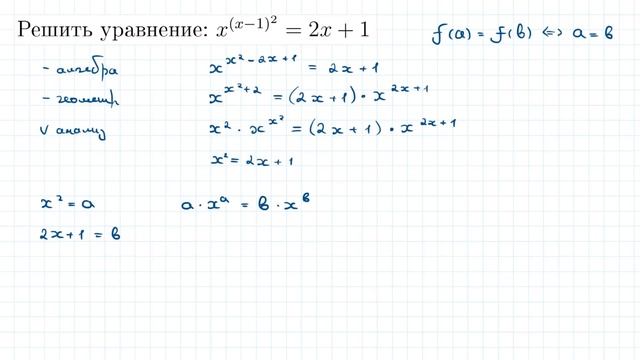 Решить уравнение: x^{(x-1)^2} = 2x + 1
f(a) = f(b) ⇔ a = b
- алгебра
x^{x^2 - 2x + 1} = 2x + 1
- геометр
x^{x^2+2} = (2x+1) · x^{2x+1}
v анализ
x^2 · x^{x^2} = (2x+1) · x^{2x+1}
x^2 = 2x + 1
x^2 = a
a · x^a = b · x^b
2x+1 = b